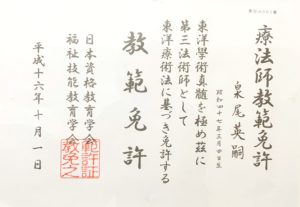 療法師教範免許
泉尾英嗣
昭和四十七年三月四日生
東洋學術真髄を極め茲に
第三法術師として
東洋療術法に基づき免許する
教範免許
平成十六年十月一日
日本資格教育学会
福祉技能教育学会